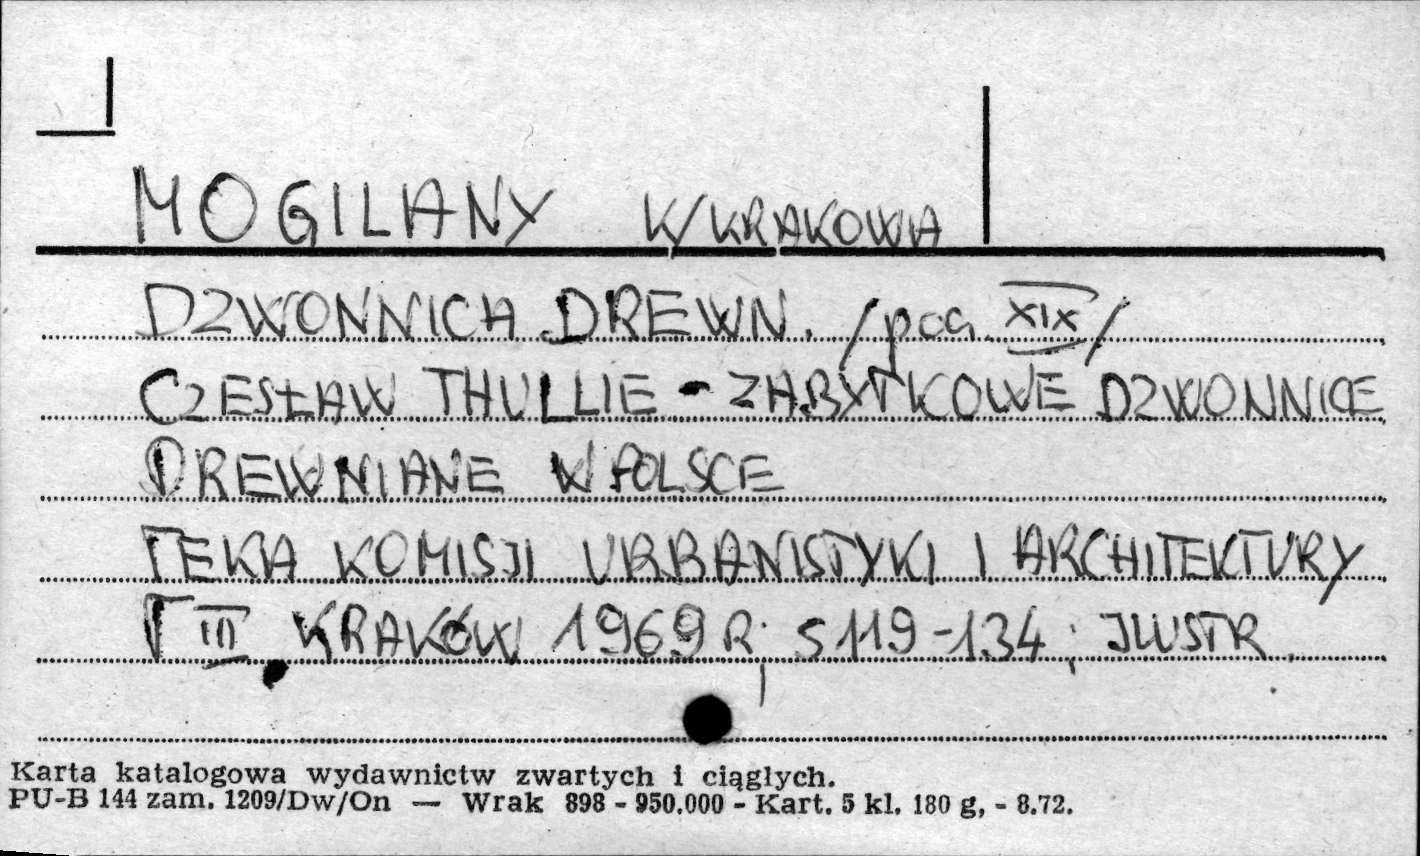 MOGILANY K/KRAKOWA
DZWONNICA DREWN. /pocz. XIX/
CZESŁAW THULLIE - ZABYTKOWE DZWONNICE
DREWNIANE W POLSCE
TEKA KOMISJI URBANISTYKI I ARCHITEKTURY
T III, KRAKÓW 1969 R; S 119-134; ILUSTR.
Karta katalogowa wydawnictw zwartych i ciągłych.
PU-B 144 zam. 1209/Dw/On — Wrak 898 - 950.000 - Kart. 5 kl. 180 g, - 8.72.